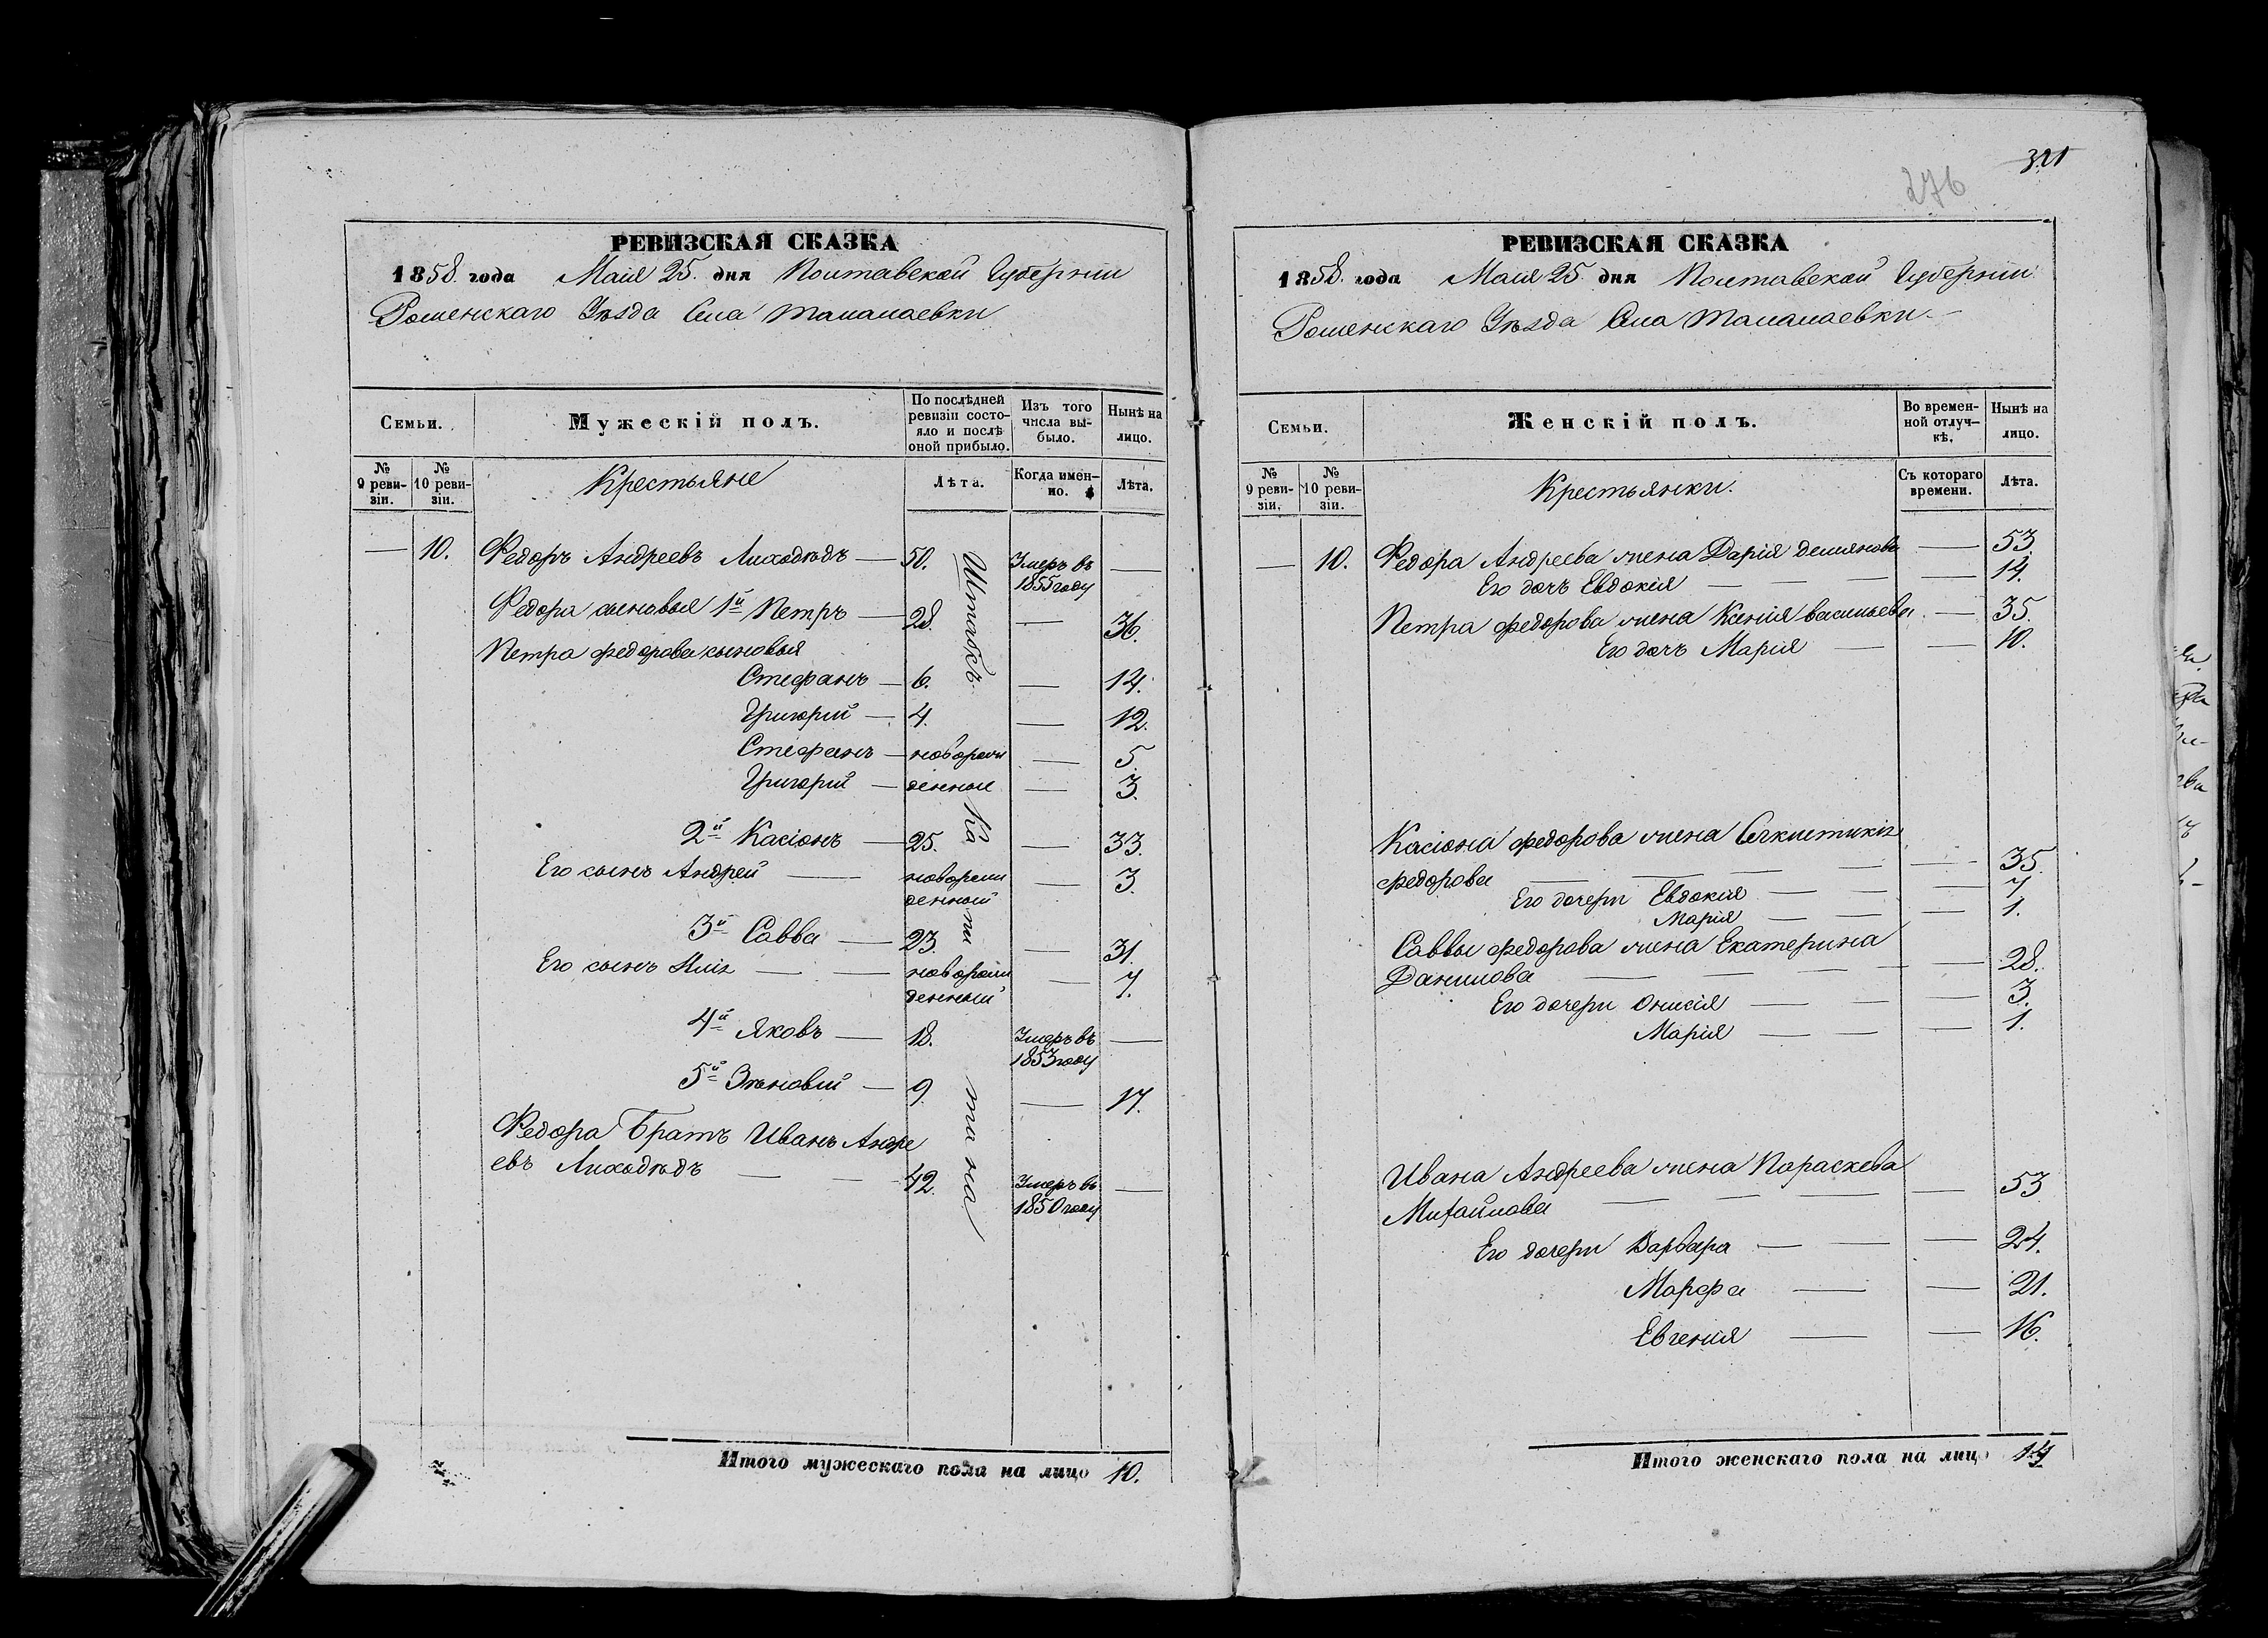 321
276
РЕВИЗСКАЯ СКАЗКА
1858. года Маия 25. дня Полтавской Губернии
Роменскаго Уѣзда Села Талалаевки
Семьи.
Мужескій полъ.
По послѣдней ревизіи состо-
яло и послѣ оной прибыло.
Изъ того числа вы-
было.
Нынѣ на лицо.
№ 9 реви-
зіи.
№ 10 реви-
зіи.
Крестьяне
Лѣта.
Когда имен-
но.
Лѣта.
— 10. Федоръ Андреевъ Лиходѣдъ — 50. Умеръ въ —
1855 году
Федора сыновья 1й Петръ — 28. — 36.
Петра федорова сыновья
Стефанъ — 6. — 14.
Григорий — 4. — 12.
Стефанъ — новорож — 5.
Григорий — денные — 3.
2й Касіонъ — 25. — 33.
Его сынъ Андрей — новорож — 3.
денный
3й Савва — 23. — 31.
Его сынъ Илія — новорож — 7.
денный
4й Яковъ — 18. Умеръ въ —
1853 году
5й Зѣновий — 9. — 17.
Федора Братъ Иванъ Андре
евъ Лиходѣдъ — 42. Умеръ въ —
1850 году
Штабсъ
Ка
пи
та на
Итого мужескаго пола на лицо 10.
РЕВИЗСКАЯ СКАЗКА
1858. года Маия 25. дня Полтавской Губернии
Роменскаго Уѣзда Села Талалаевки. —
Семьи.
Женскій полъ.
Во времен-
ной отлуч-
кѣ.
Нынѣ на лицо.
№ 9 реви-
зіи.
№ 10 реви-
зіи.
Крестьянки.
Съ котораго времени.
Лѣта.
— 10. Федора Андреева жена Дарія Демянова — 53.
Его дочъ Евдокія — 14.
Петра федорова жена Ксенія васильева — 35.
Его дочъ Марія — 10.
Касіона федорова жена
федорова — 35.
Его дочери Евдокія — 7.
Марія — 1.
Саввы федорова жена Екатерина
Данилова — 28.
Его дочери Онисія — 3.
Марія — 1.
Ивана Андреева жена Параскева
Михайлова — 53
Его дочери Варвара — 24.
Марфа — 21.
Евгенія — 16.
Итого женскаго пола на лицо 14